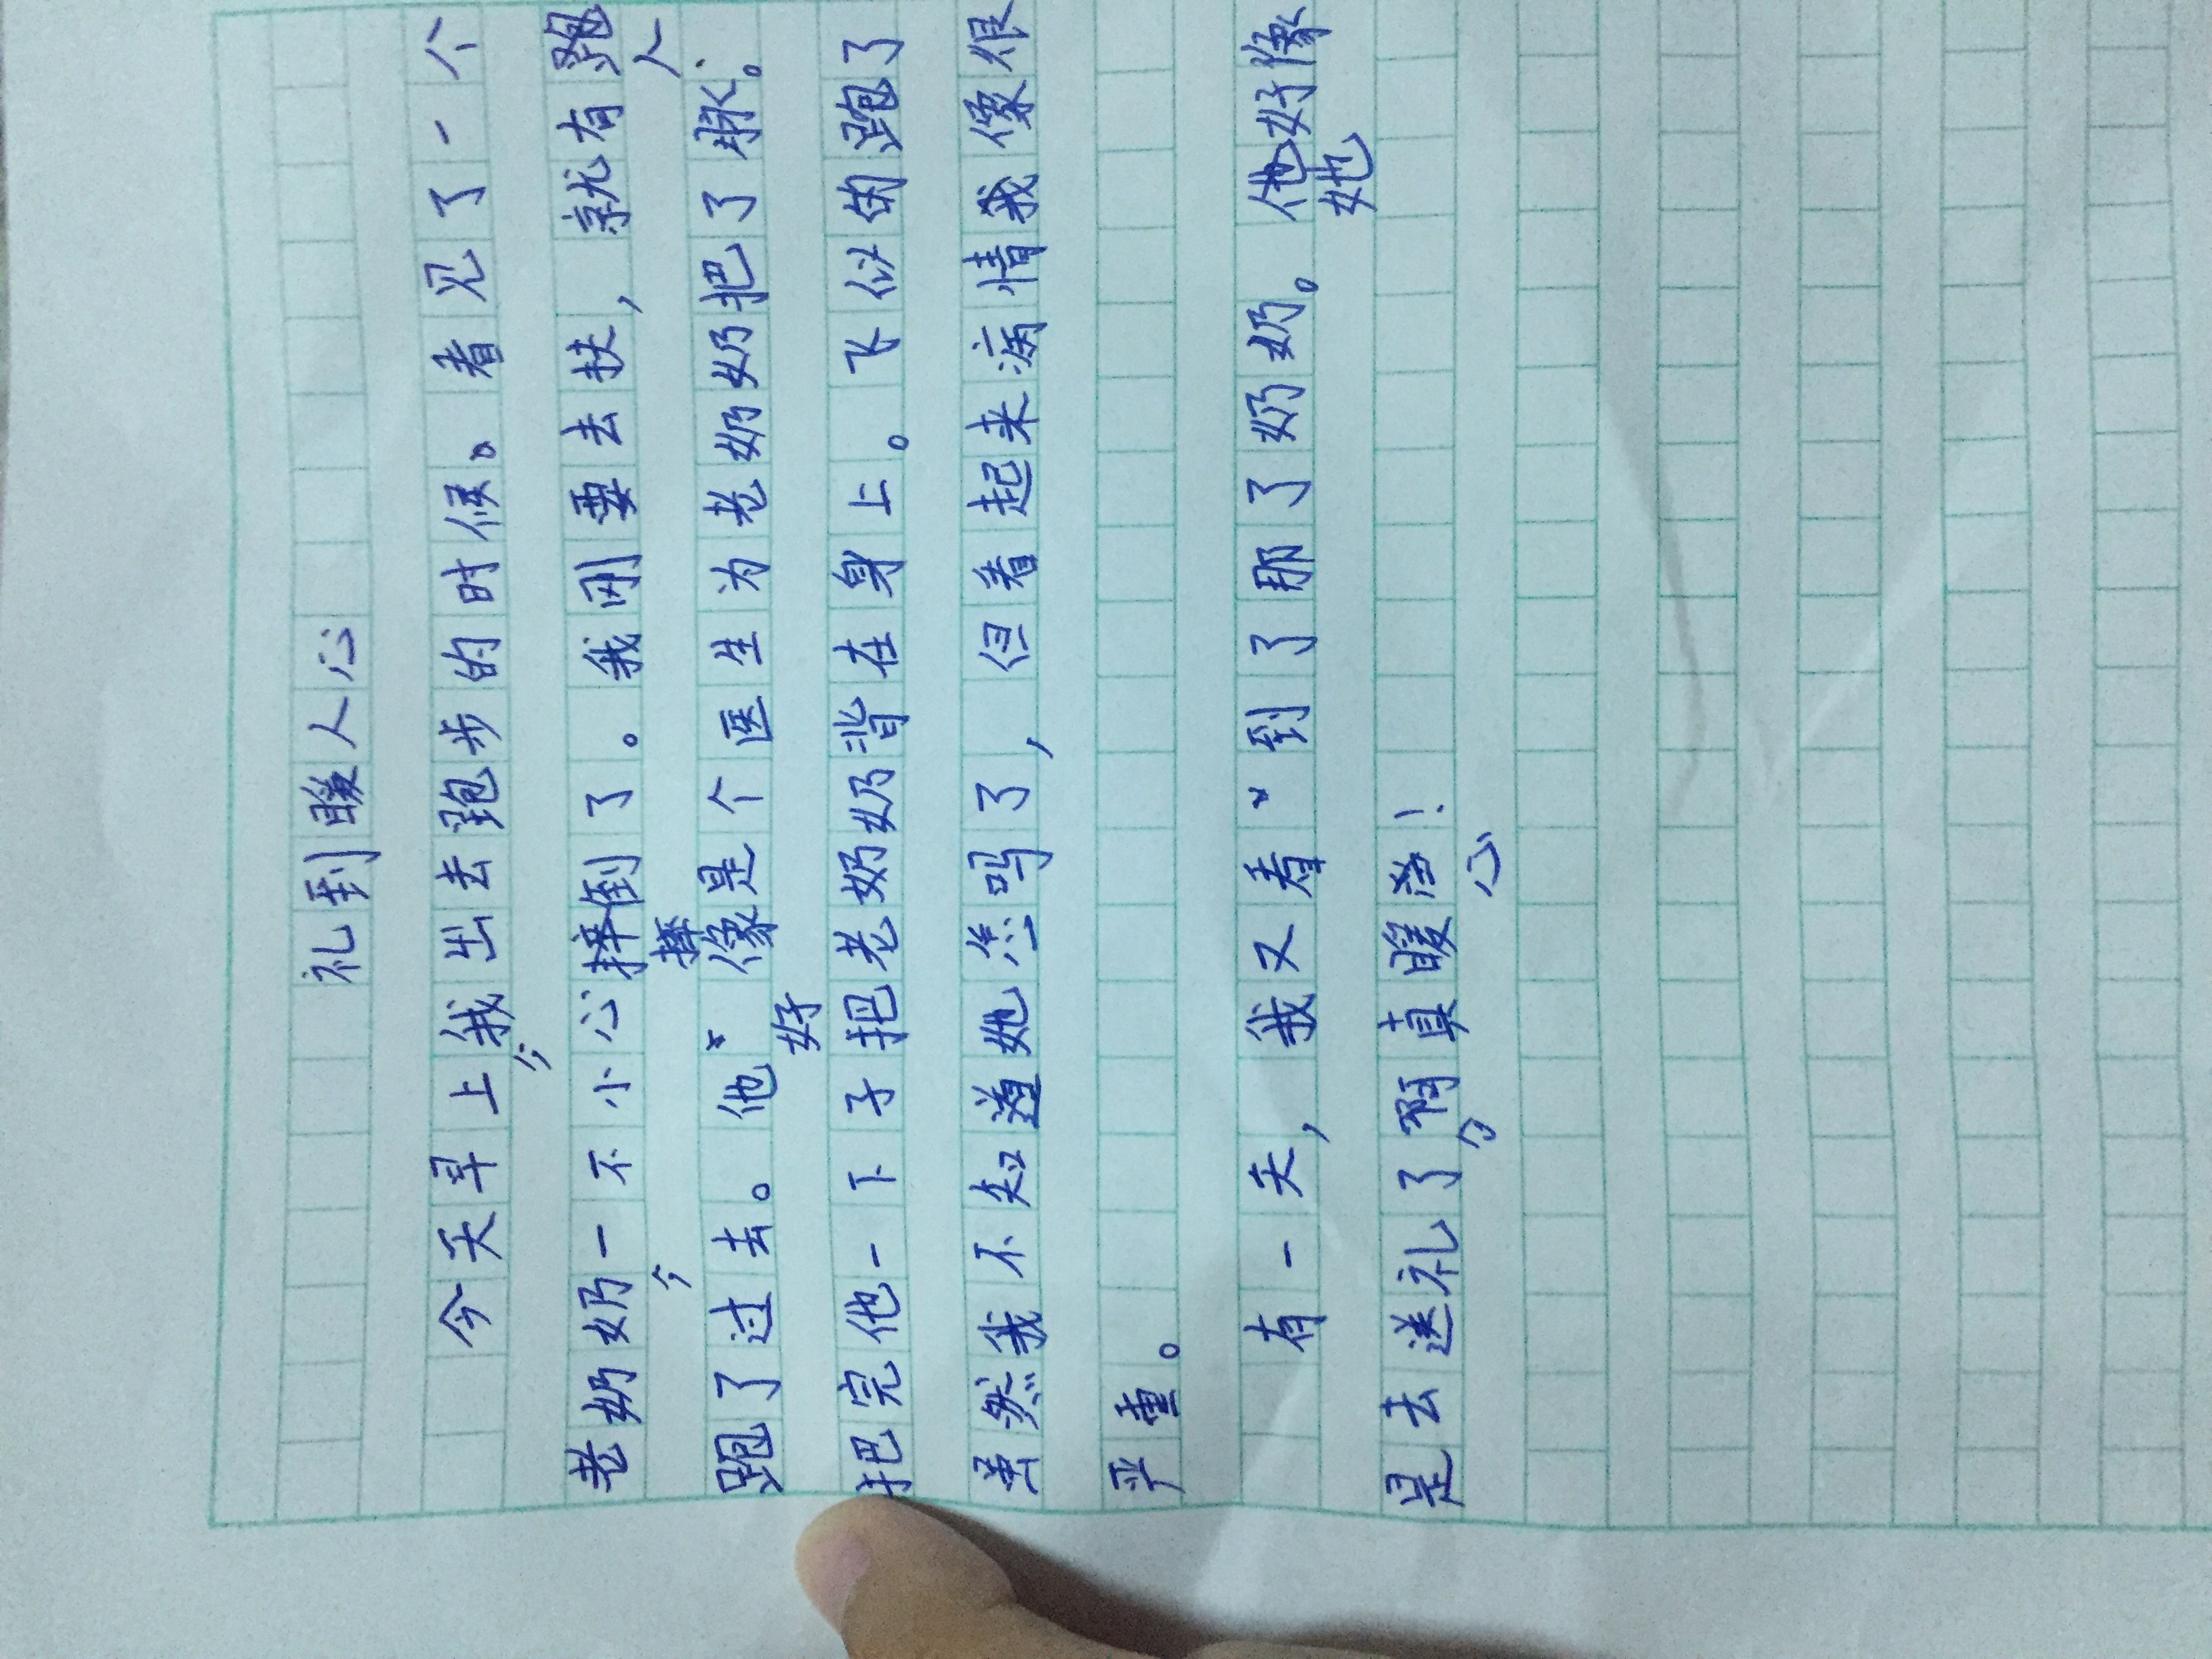 礼到暖人心
今天早上我出去跑步的时候。看见了一个
老奶奶一不小心摔倒了。我刚要去扶，就有人
跑了过去。他好像是个医生为老奶奶奶把了脉。
把完他一下子把老奶奶背在身上。飞似的跑了
虽然我不知道她怎吗了，但看起来病情我像很
严重。
有一天，我又看到了那了奶奶。她好像
是去送礼了啊真暖心！